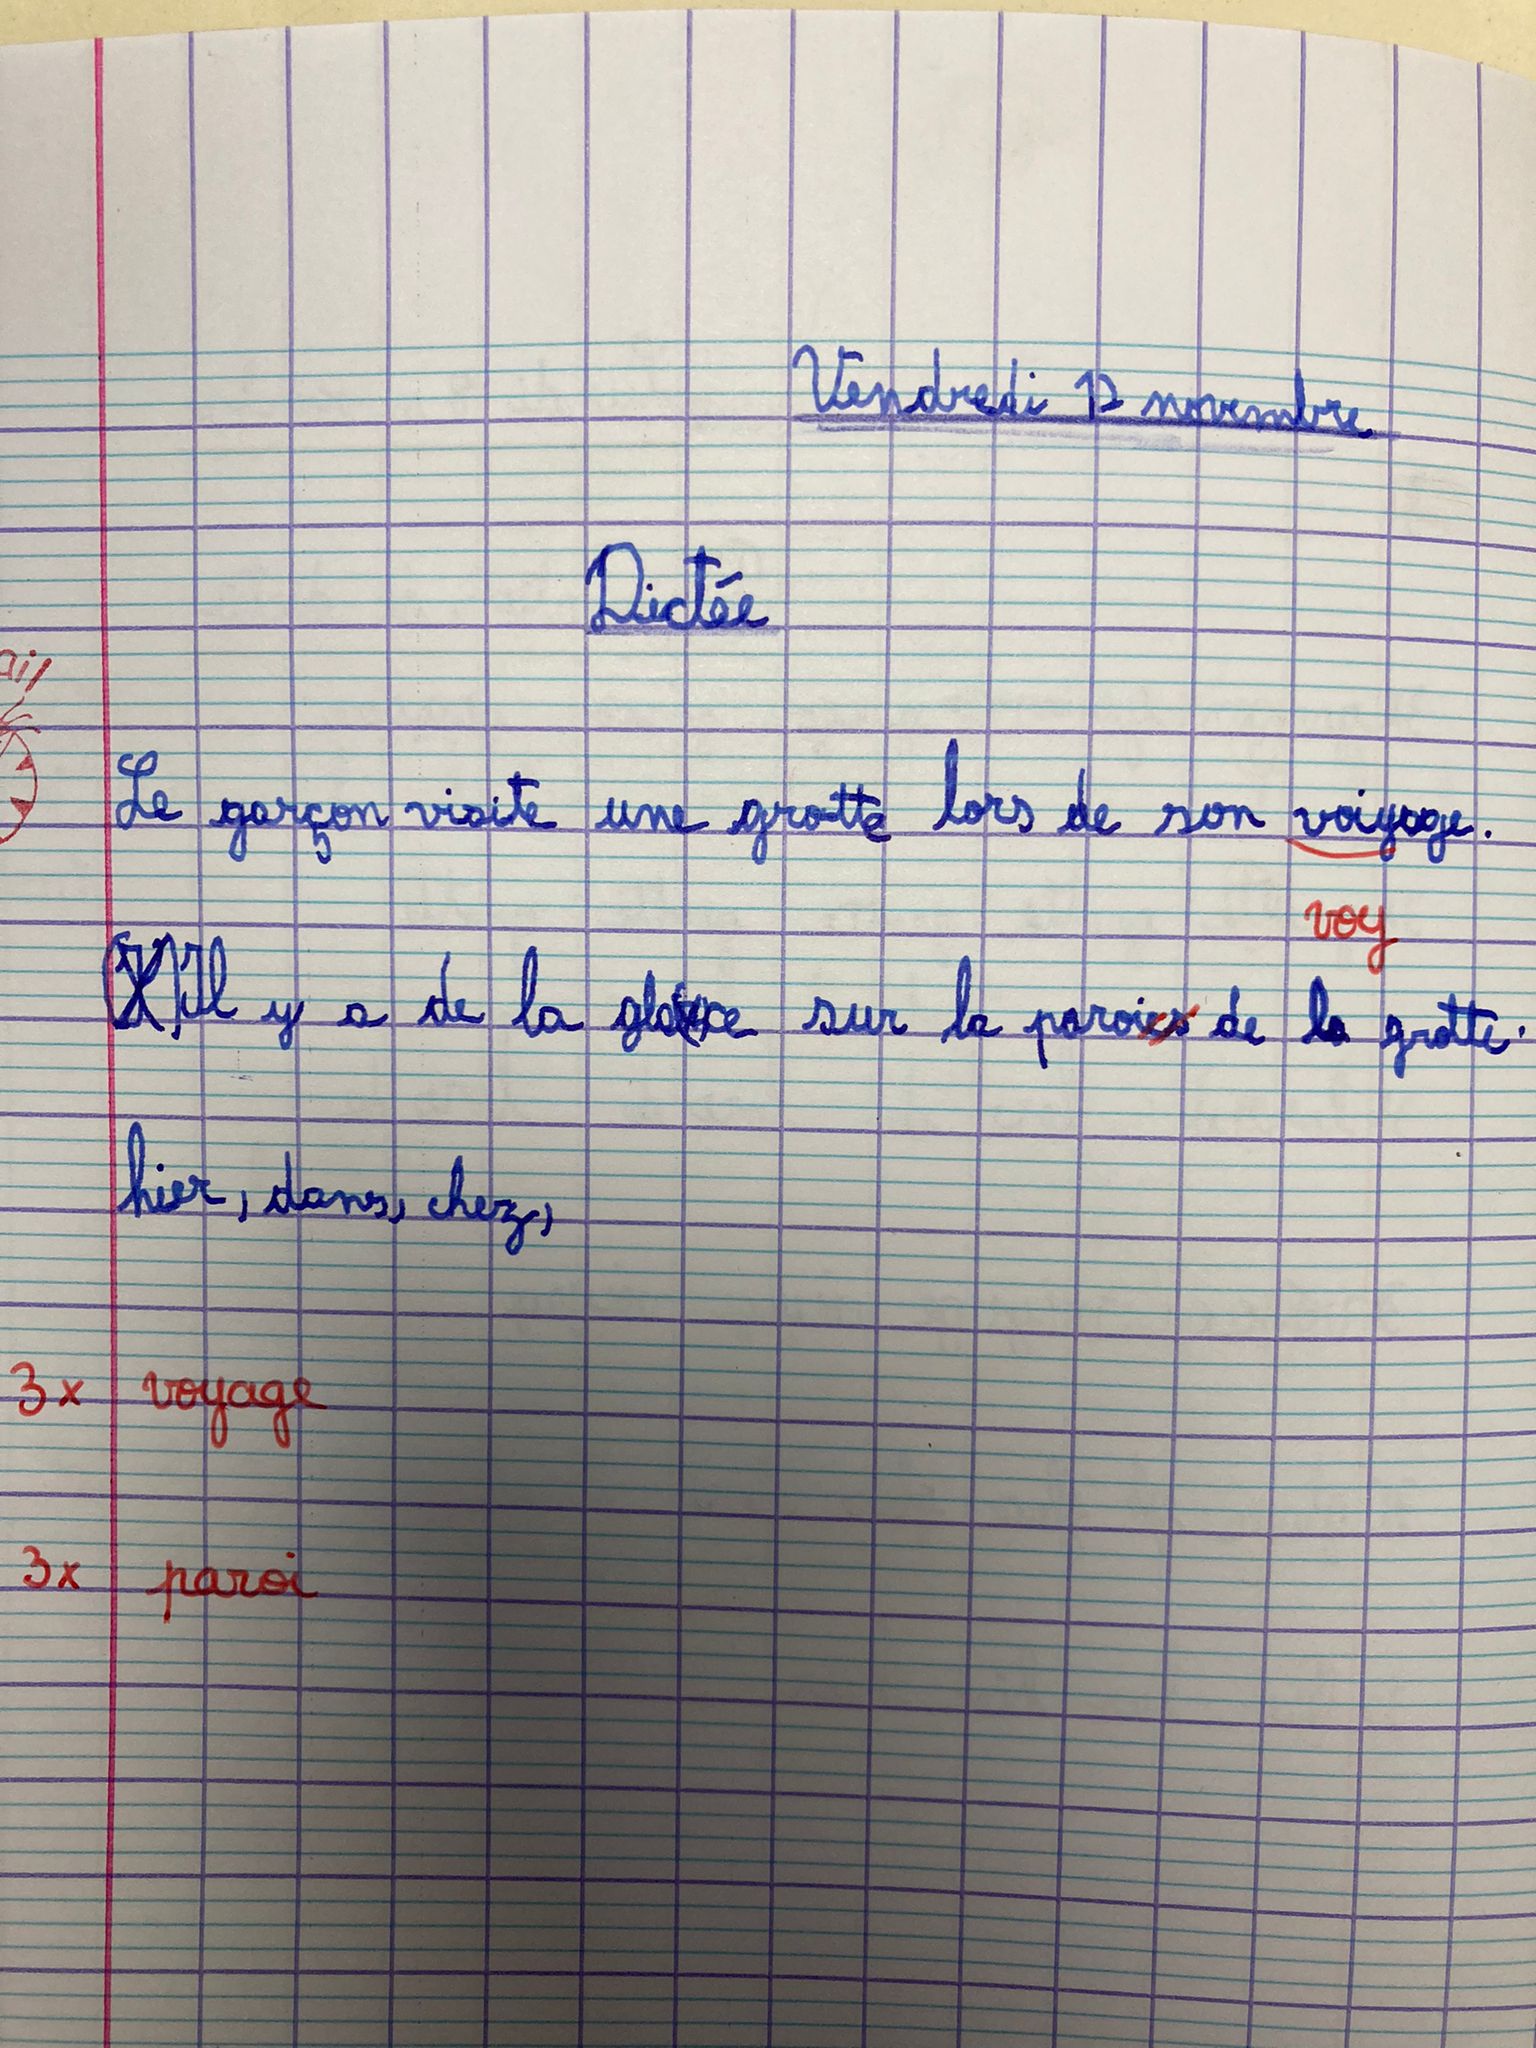 Vendredi 12 novembre
Dictée
ail
Le garçon visite une grotte lors de son voiyage.
voy
Il y a de la glace sur la paroies de la grotte.
hier, dans, chez,
3x voyage
3x paroi